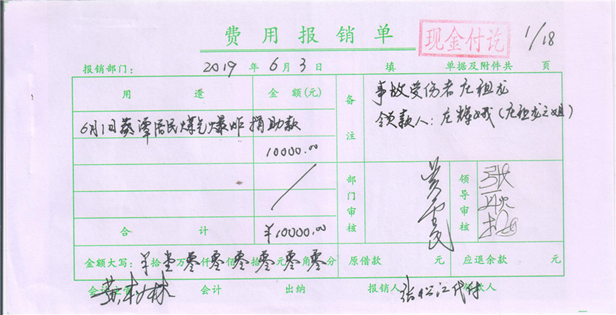 费用报销单
现金付讫
1/18
报销部门： 2019 年 6 月 3 日 填 单据及附件共 页
用 途 金 额(元)
6月1日蔡潭居民煤气爆炸捐助款
10000.00
合 计 ¥10000.00
备注
事故受伤者庄祖龙
领款人：庄辉娥(庄祖龙之姐)
部门审核
领导审核
金额大写： 拾壹万零仟零佰零拾零元零角零分 原借款 元 应退余款 元
会计 会计 出纳 报销人 张松江代付